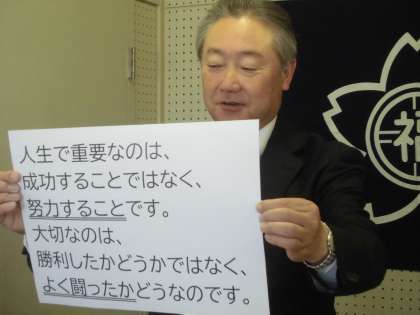 人生で重要なのは、
成功することではなく、
努力することです。
大切なのは、
勝利したかどうかではなく、
よく闘ったかどうなのです。
福